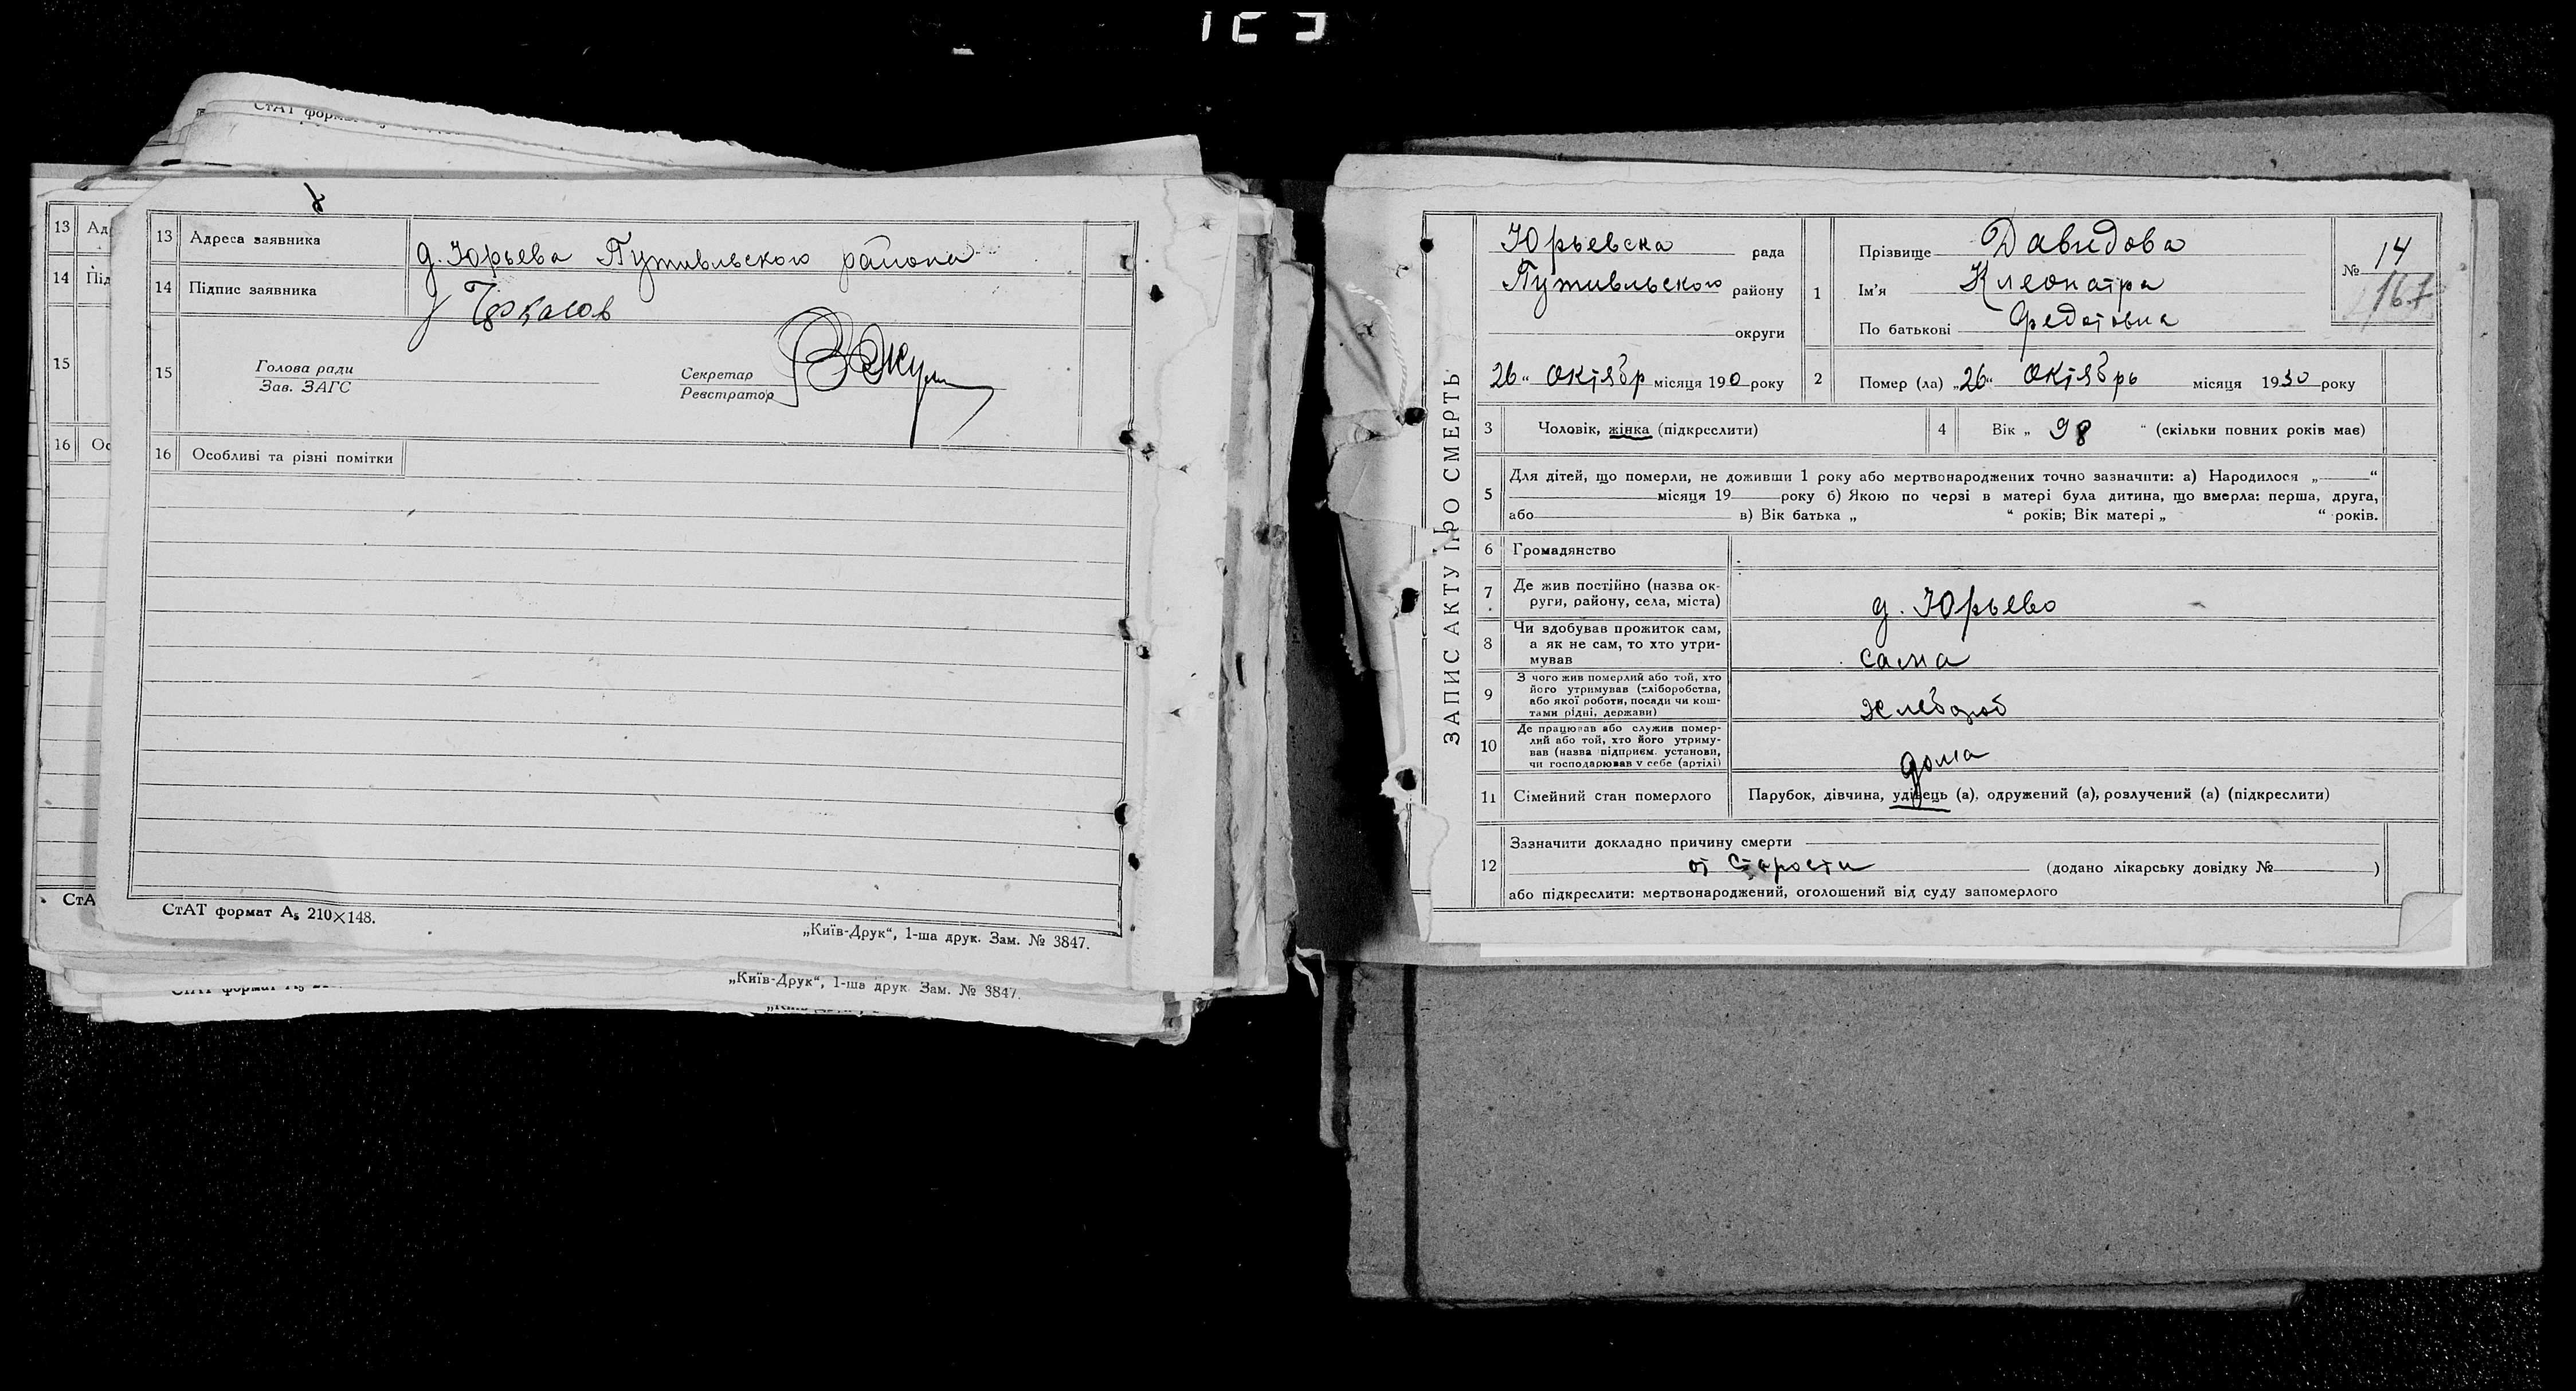 СтАТ форм
13 Ад
14 Під
15
16 Ос
СтА
13 Адреса заявника д. Юрьева Путивльского района
14 Підпис заявника
15 Голова ради
Зав. ЗАГС
Секретар
Реєстратор
16 Особливі та різні помітки
СтАТ формат А5 210×148.
„Київ-Друк“, 1-ша друк. Зам. № 3847.
„Київ-Друк“, 1-ша друк Зам. № 3847.
ЗАПИС АКТУ ПРО СМЕРТЬ
Юрьевска рада
Путивльского району
округи
1 Прізвище Давидова
Ім'я Клеопатра
По батькові Федотовна
№ 14
167
26 “ октябр місяця 190 року
2 Помер (ла) „26“ октябрь місяця 1930 року
3 Чоловік, жінка (підкреслити)
4 Вік „ 98 “ (скільки повних років має)
5 Для дітей, що померли, не доживши 1 року або мертвонароджених точно зазначити: а) Народилося „ “
місяця 19 року б) Якою по черзі в матері була дитина, що вмерла: перша, друга,
або в) Вік батька „ “ років; Вік матері „ “ років.
6 Громадянство
7 Де жив постійно (назва ок-
руги, району, села, міста) д. Юрьево
8 Чи здобував прожиток сам,
а як не сам, то хто утри-
мував сама
9 З чого жив померлий або той, хто
його утримував (хліборобства,
або якої роботи, посади чи кош-
тами рідні, держави) хлебороб
10 Де працював або служив помер-
лий або той, хто його утриму-
вав (назва підприєм. установи,
чи господарював у себе (артілі) дома
11 Сімейний стан померлого Парубок, дівчина, удівець (а), одружений (а), розлучений (а) (підкреслити)
12 Зазначити докладно причину смерти
от старости (додано лікарську довідку № )
або підкреслити: мертвонароджений, оголошений від суду запомерлого